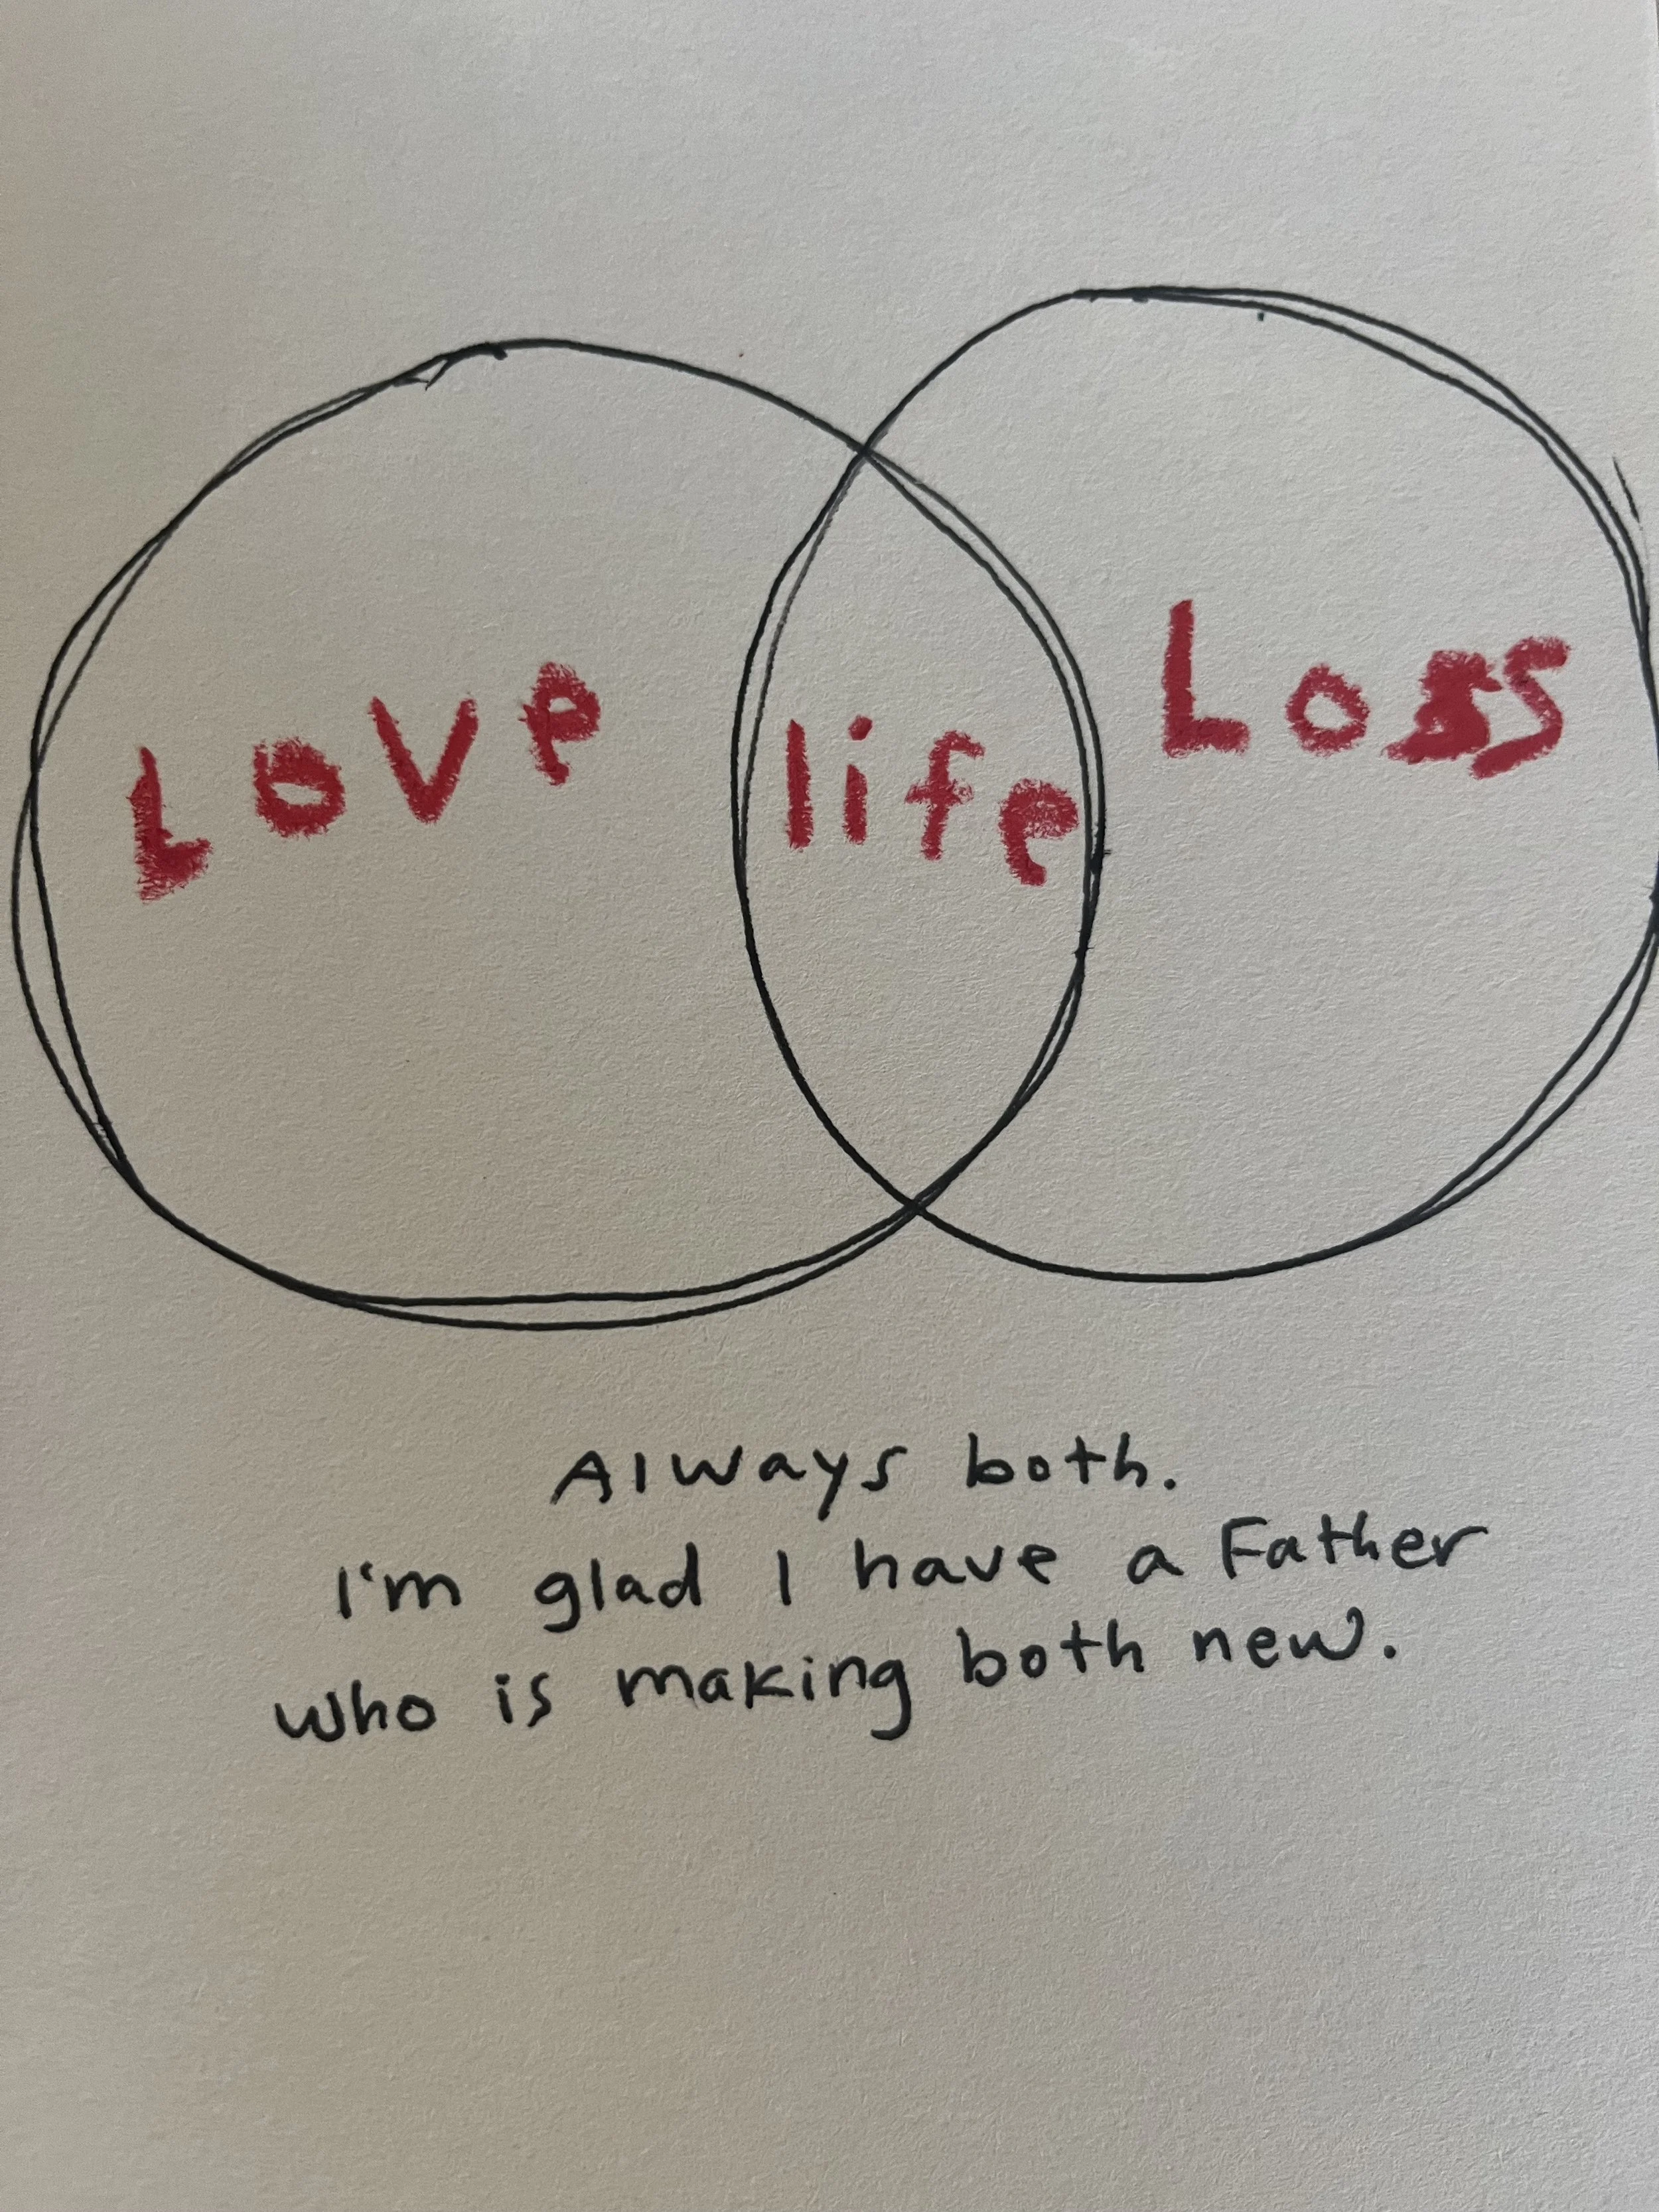 Love life Loss
Always both.
I'm glad I have a Father
who is making both new.